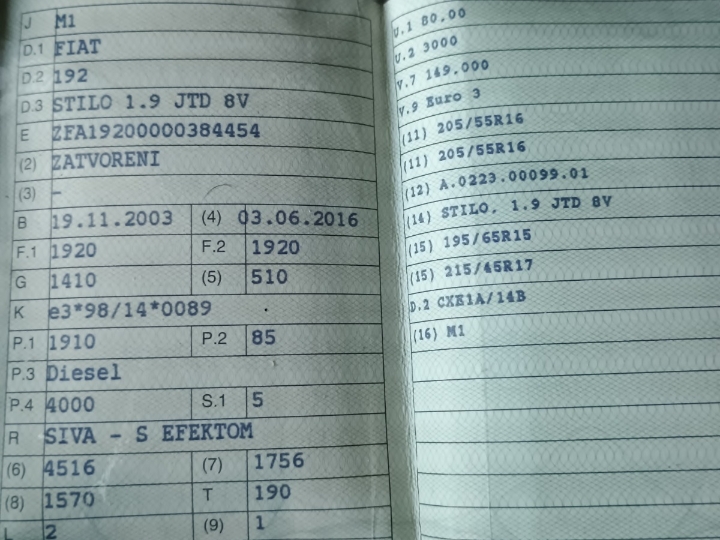 J M1
D.1 FIAT
D.2 192
D.3 STILO 1.9 JTD 8V
E ZFA19200000384454
(2) ZATVORENI
(3) -
B 19.11.2003 (4) 03.06.2016
F.1 1920 F.2 1920
G 1410 (5) 510
K e3*98/14*0089
P.1 1910 P.2 85
P.3 Diesel
P.4 4000 S.1 5
R SIVA - S EFEKTOM
(6) 4516 (7) 1756
(8) 1570 T 190
L 2 (9) 1
U.1 80.00
U.2 3000
V.7 149.000
V.9 Euro 3
(11) 205/55R16
(11) 205/55R16
(12) A.0223.00099.01
(14) STILO. 1.9 JTD 8V
(15) 195/65R15
(15) 215/45R17
D.2 CXE1A/14B
(16) M1